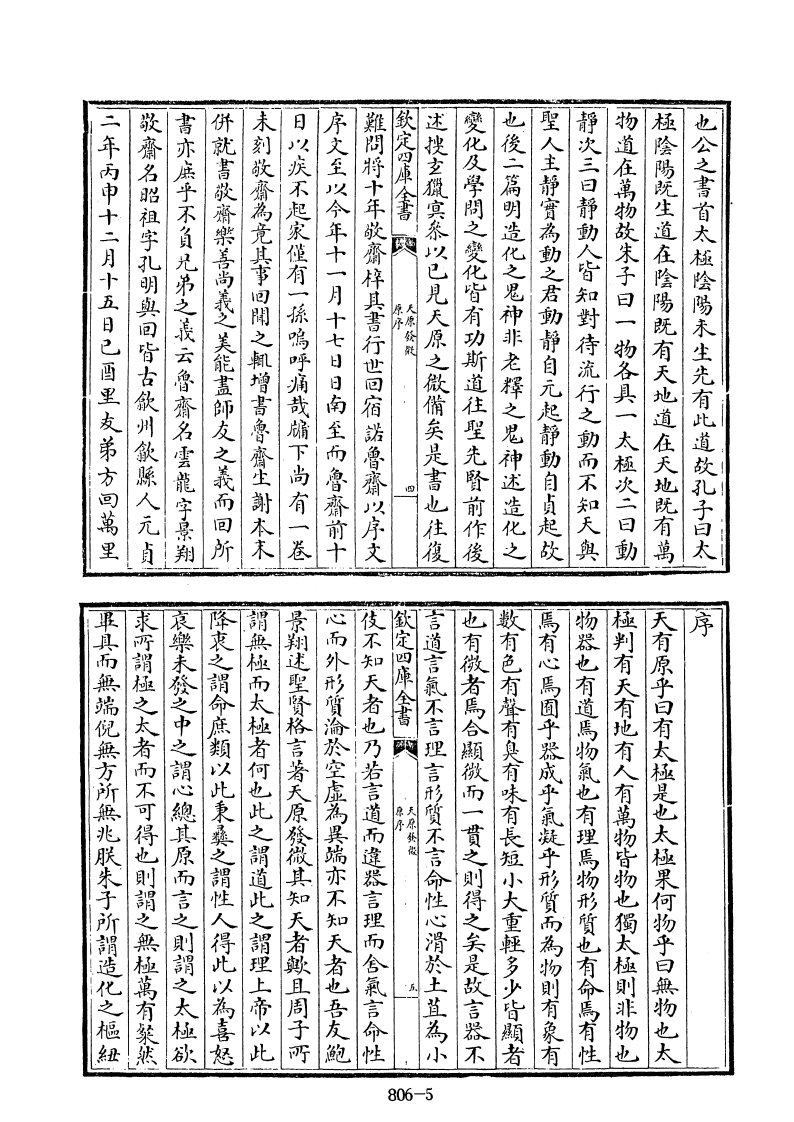 也公之書首太極陰陽未生先有此道故孔子曰太
極陰陽既生道在陰陽既有天地道在天地既有萬
物道在萬物故朱子曰一物各具一太極次二曰動
靜次三曰靜動人皆知對待流行之動而不知天與
聖人主靜實為動之君動靜自元起靜動自貞起故
也後二篇明造化之鬼神非老釋之鬼神述造化之
變化及學問之變化皆有功斯道往聖先賢前作後
述搜玄獵冥參以已見天原之微備矣是書也往復
欽定四庫全書
天原發微
原序
四
難問將十年敬齋梓其書行世回宿諾魯齋以序文
序文至以今年十一月十七日日南至而魯齋前十
日以疾不起家僅有一孫嗚呼痛哉牖下尚有一卷
未刻敬齋為竟其事回聞之輒增書魯齋生謝本末
併就書敬齋樂善尚義之美能盡師友之義而回所
書亦庶乎不負兄弟之義云魯齋名雲龍字景翔
敬齋名昭祖字孔明與回皆古歙州歙縣人元貞
二年丙申十二月十五日己酉里友弟方回萬里
序
天有原乎曰有太極是也太極果何物乎曰無物也太
極判有天有地有人有萬物皆物也獨太極則非物也
物器也有道焉物氣也有理焉物形質也有命焉有性
焉有心焉囿乎器成乎氣凝乎形質而為物則有象有
數有色有聲有臭有味有長短小大重輕多少皆顯者
也有微者焉合顯微而一貫之則得之矣是故言器不
言道言氣不言理言形質不言命性心滑於土苴為小
欽定四庫全書
天原發微
原序
五
伎不知天者也乃若言道而違器言理而舍氣言命性
心而外形質淪於空虛為異端亦不知天者也吾友鮑
景翔述聖賢格言著天原發微其知天者歟且周子所
謂無極而太極者何也此之謂道此之謂理上帝以此
降衷之謂命庶類以此秉彝之謂性人得此以為喜怒
哀樂未發之中之謂心總其原而言之則謂之太極欲
求所謂極之太者而不可得也則謂之無極萬有粲然
畢具而無端倪無方所無兆朕朱子所謂造化之樞紐
806-5